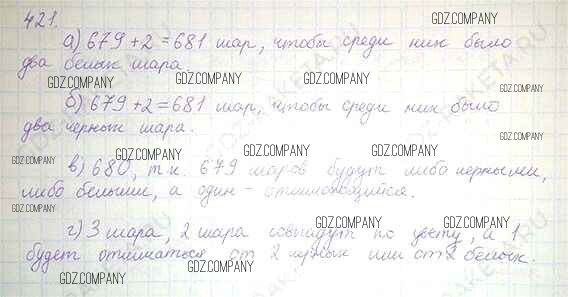 421.
GDZ.COMPANY
а) 679 + 2 = 681 шар, чтобы среди них было
два белых шара.
GDZ.COMPANY GDZ.COMPANY GDZ.COMPANY
б) 679 + 2 = 681 шар, чтобы среди них было
GDZ.COMPANY
два черных шара.
GDZ.COMPANY
GDZ.COMPANY GDZ.COMPANY GDZ.COMPANY
в) 680, т.к. 679 шаров будут либо черными,
либо белыми, а один - отличающийся.
GDZ.COMPANY
GDZ.COMPANY GDZ.COMPANY
г) 3 шара, 2 шара совпадут по цвету, а 1
GDZ.COMPANY
будет отличаться от 2 черных или от 2 белых.
GDZ.COMPANY
GDZ.COMPANY